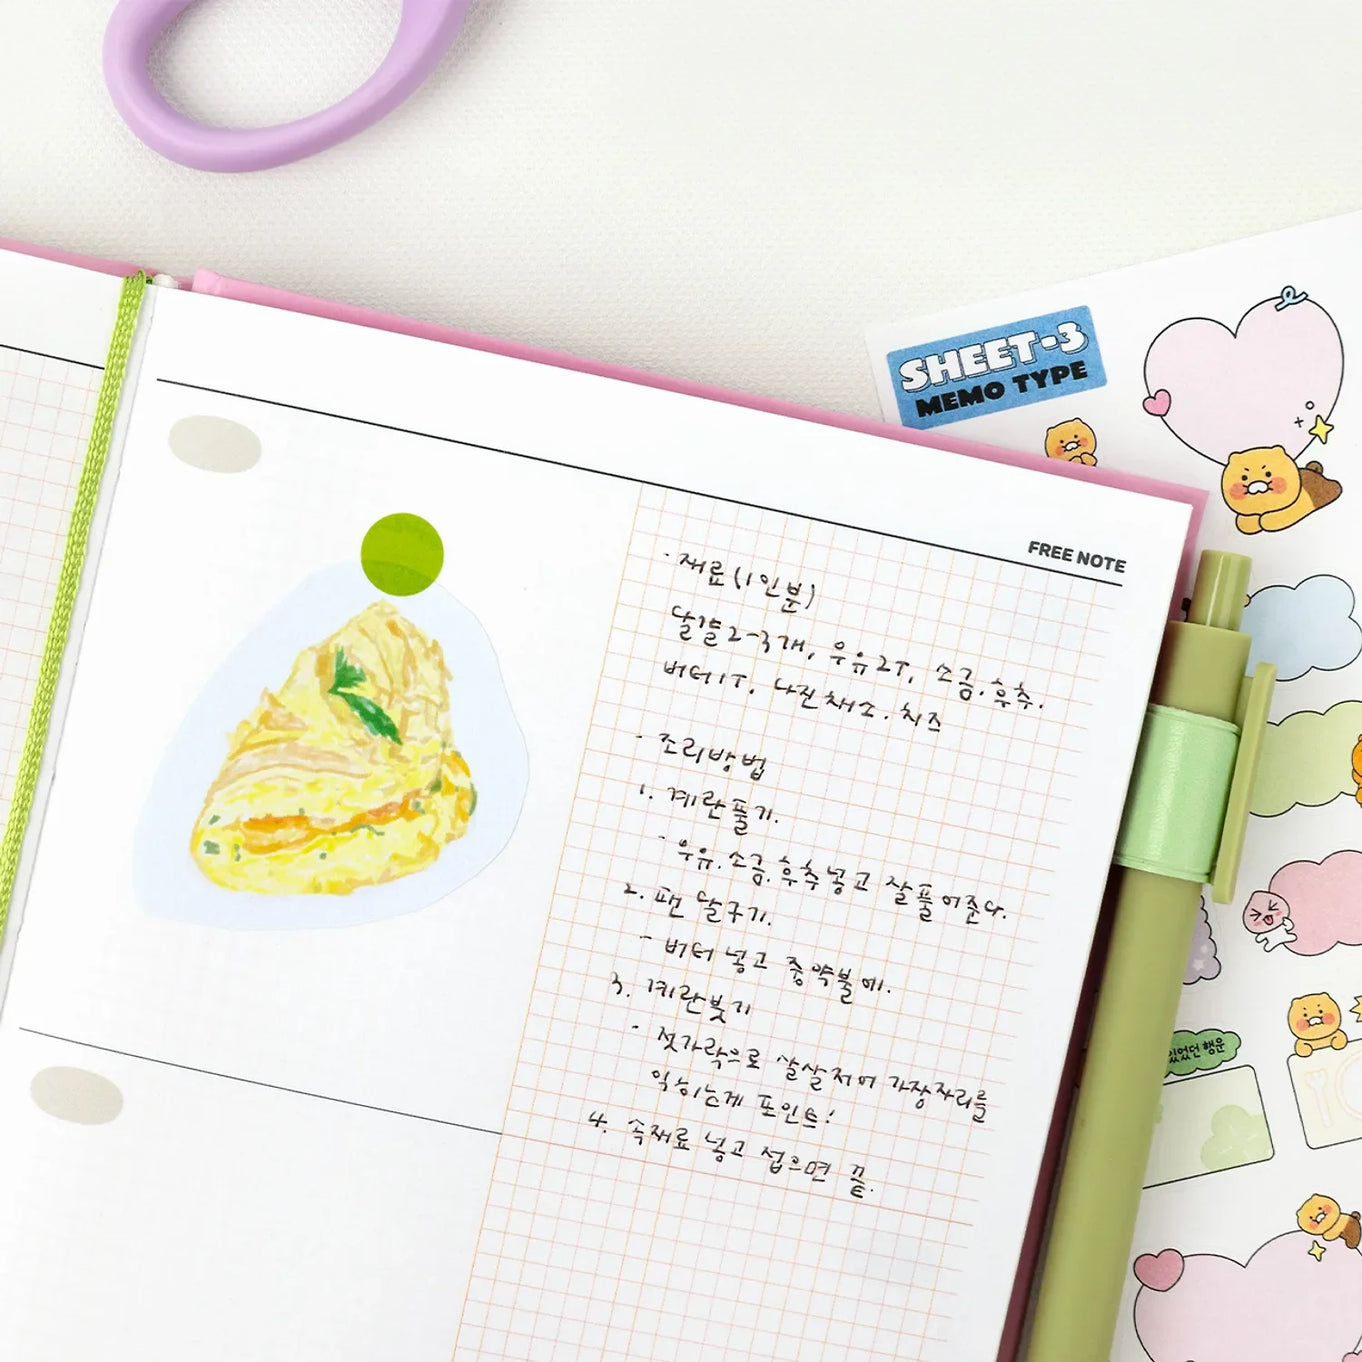 SHEET-3
MEMO TYPE
FREE NOTE
· 재료(1인분)
달걀 2-3개, 우유 2T, 소금.후추.
버터 1T. 다진채소. 치즈
· 조리방법
1. 계란풀기.
· 우유.소금.후추 넣고 잘풀어준다.
2. 팬 달구기.
- 버터 넣고 중약불에.
3. 계란붓기
· 젓가락으로 살살저어 가장자리를
익히는게 포인트!
4. 속재료 넣고 접으면 끝.
있었던 행운